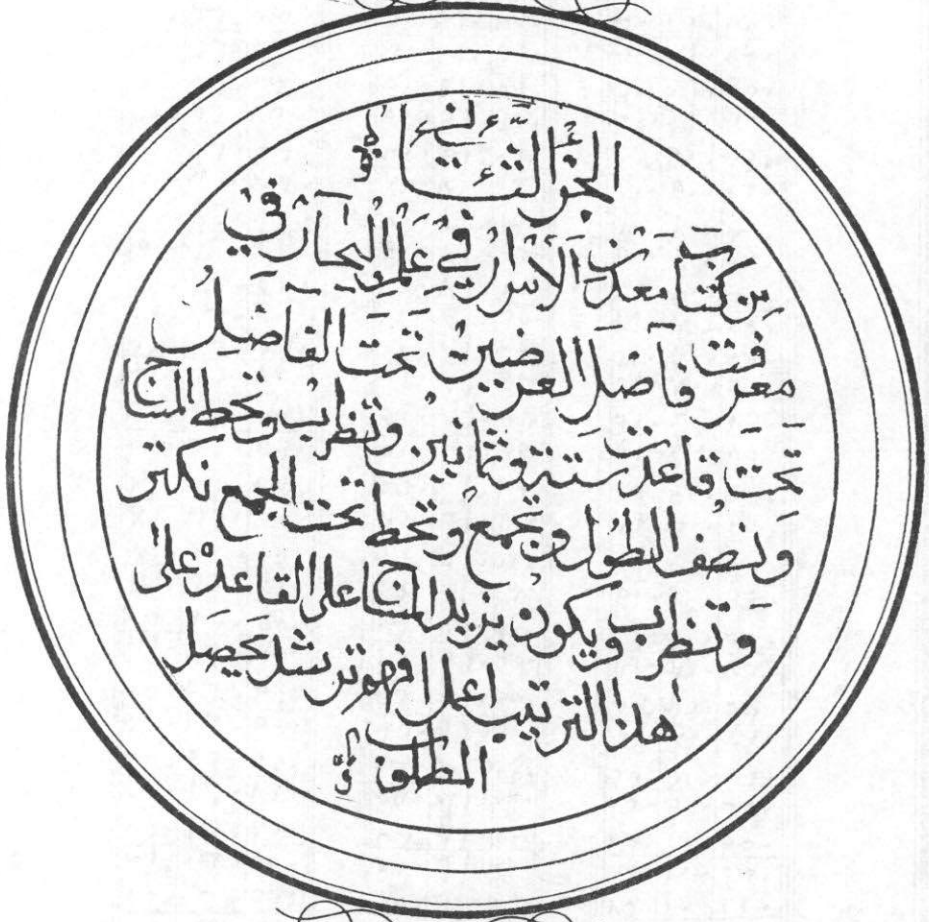 الجزء الثاني
من كتاب معدن الاسرار في علم البحار في
معرفت فاضل العرضين تحت الفاضل
تحت قاعدت ستة وثمانين وتظرب وتحط المبتاج
ونصف الطول وتجمع وتحط تحت الجمع نكتر
وتظرب ويكون يزيد المبتاج على القاعده على
هذا الترتيب اعمل افهم ترشد يحصل
المطلوب